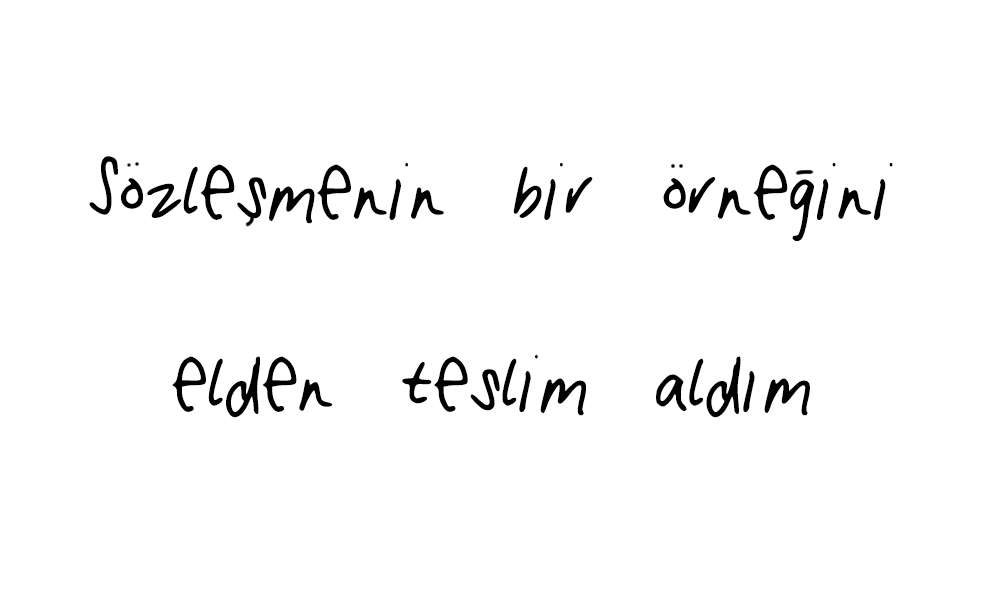 Sözleşmenin bir örneğini
elden teslim aldım